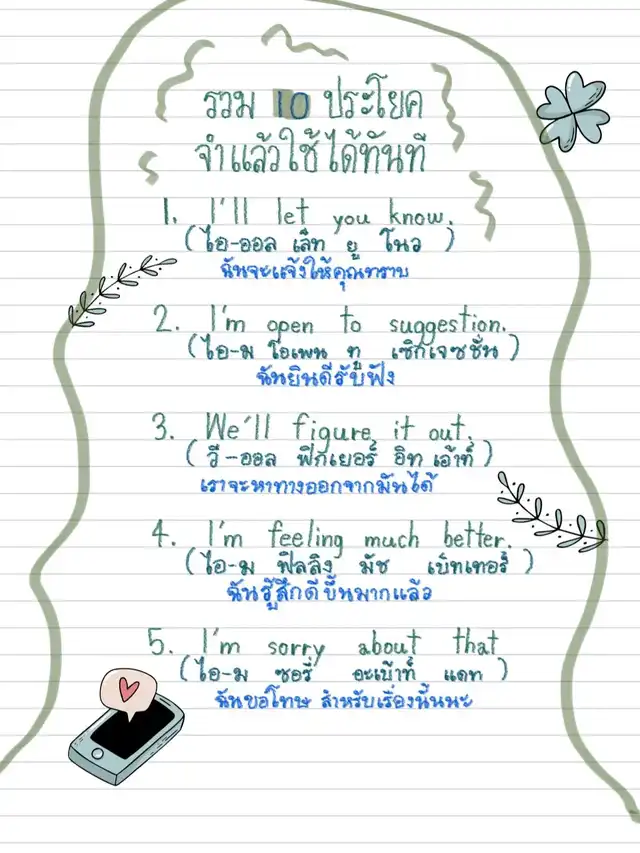 รวม 10 ประโยค
จำแล้วใช้ได้ทันที
1. I'll let you know.
(ไอ-ออล เล็ท ยู โนว )
ฉันจะแจ้งให้คุณทราบ
2. I'm open to suggestion.
(ไอ-ม โอเพน ทู เซิกเจซชั่น )
ฉันยินดีรับฟัง
3. We'll figure it out.
( วี-ออล ฟิกเยอร์ อิท เอ้าท์ )
เราจะหาทางออกจากมันได้
4. I'm feeling much better.
(ไอ-ม ฟิลลิง มัช เบ็ทเทอร์ )
ฉันรู้สึกดีขึ้นมากแล้ว
5. I'm sorry about that
(ไอ-ม ซอรี่ อะเบ้าท์ แดท )
ฉันขอโทษ สำหรับเรื่องนั้นนะ